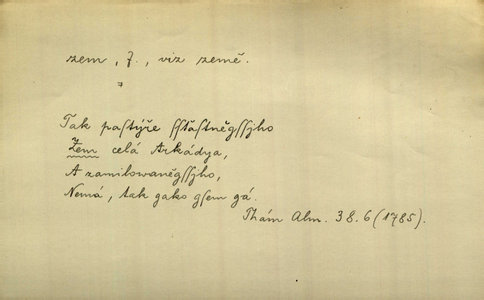 zem, f., viz země.
Tak paſtýře ſſťaſtněgſſjho
Zem celá Arkádya,
A zamilowaněgſſjho,
Nemá, tak gako gſem gá.
Thám Alm. 38.6 (1785).